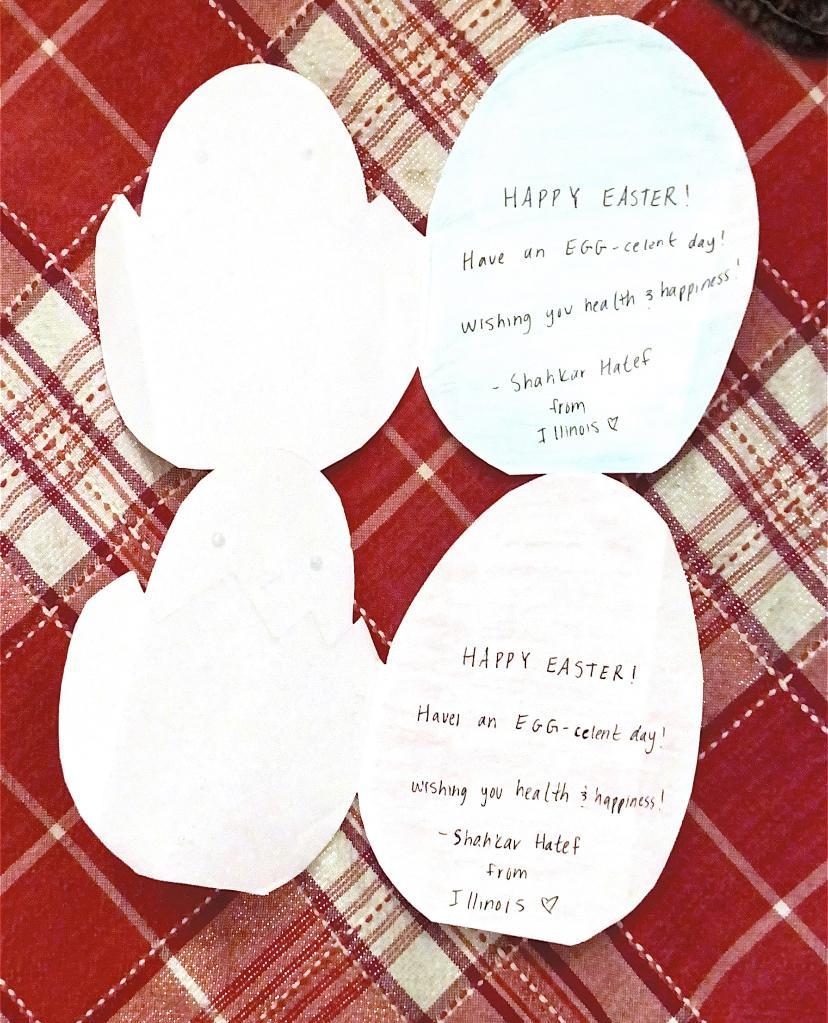 HAPPY EASTER!
Have an EGG-celent day!
Wishing you health & happiness!
- Shahkar Hatef
from
Illinois ♡
HAPPY EASTER!
Have an EGG-celent day!
Wishing you health & happiness!
- Shahkar Hatef
from
Illinois ♡